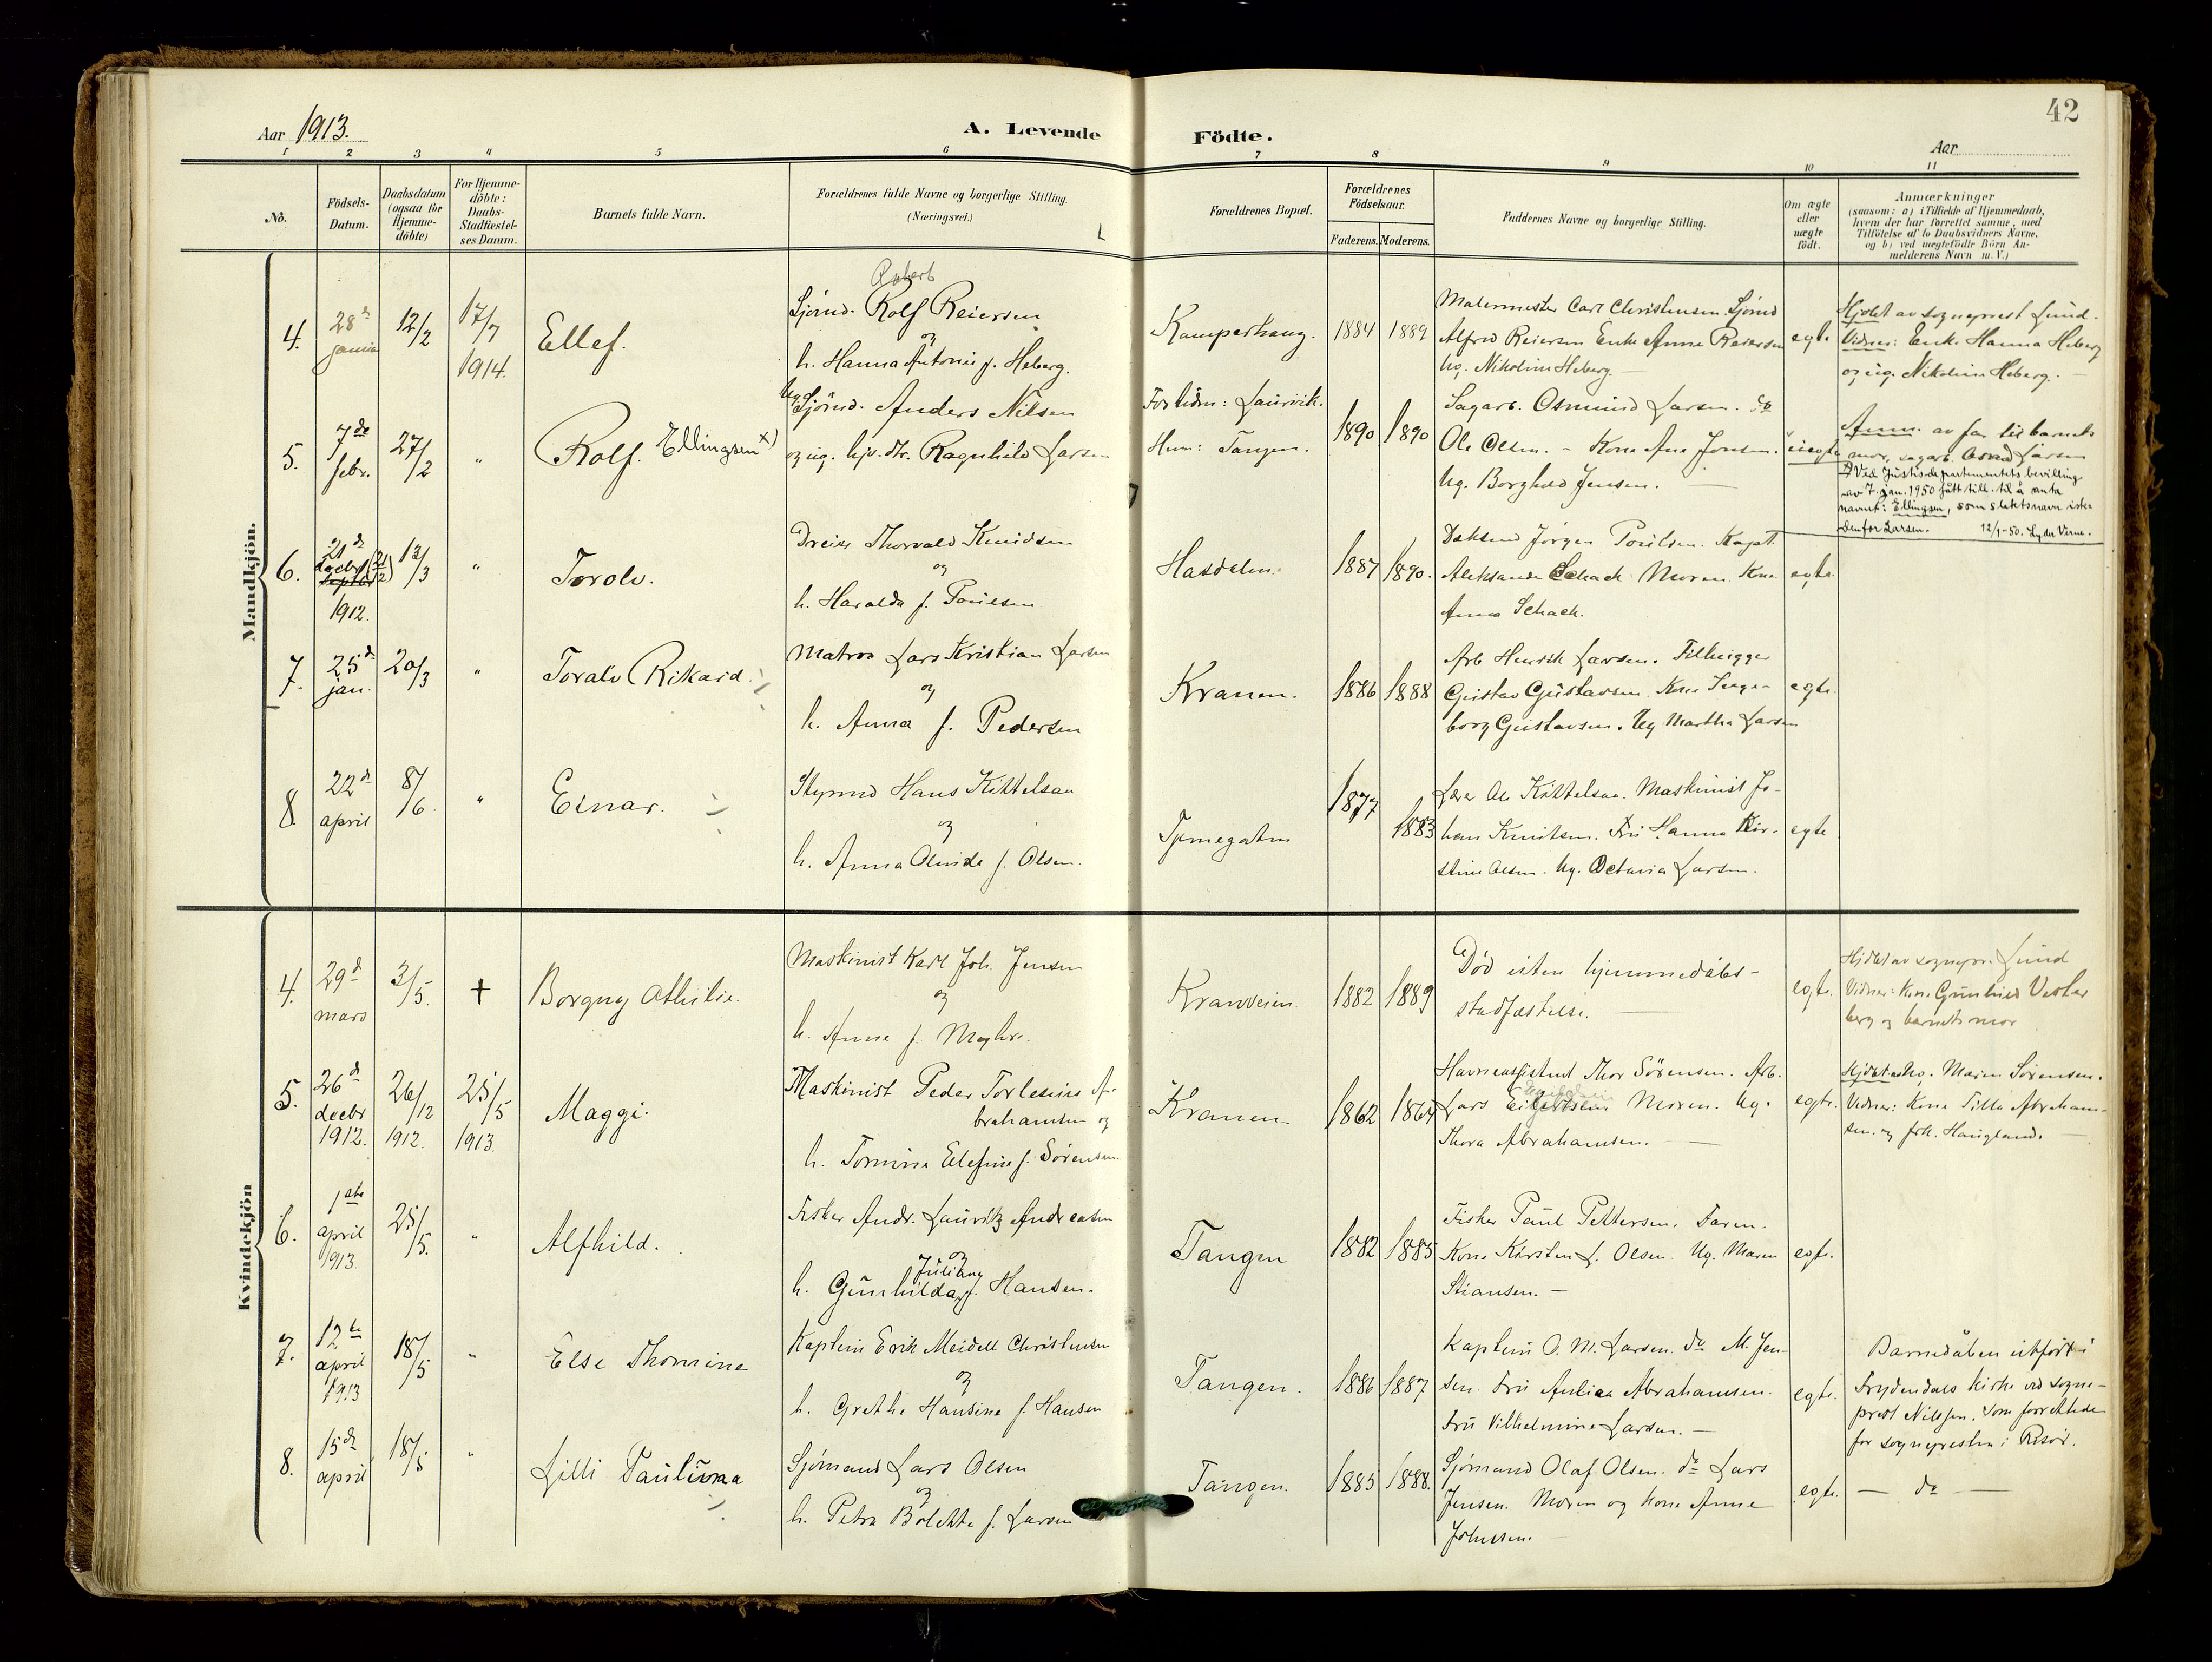 42
Aar 1913.
A. Levende Födte.
Aar
1 2 3 4 5 6 7 8 9 10 11
No.
Födsels-
Datum.
Daabsdatum
(ogsaa for
Hjemme-
döbte)
For Hjemme-
döbte:
Daabs-
Stadfæstel-
ses Datum.
Barnets fulde Navn.
Forældrenes fulde Navne og borgerlige Stilling.
(Næringsvei.)
Forældrenes Bopæl.
Forældrenes
Födselsaar.
Faderens. Moderens.
Faddernes Navne og borgerlige Stilling.
Om ægte
eller
uægte
födt.
Anmærkninger
(saasom: a) i Tilfælde af Hjemmedaab,
hvem der har forrettet samme, med
Tilföielse af to Daabsvidners Navne.
og b) ved uægtefödte Börn An-
melderens Navn m. V.)
Mandkjön.
4.
28d
12/2
17/7
1914.
Ellef.
Robert
Sjømd. Rolf Reiersen
og
h. Hanna Antonie f. Heberg.
Kamperhaug.
1884 1889
Malermester Carl Christensen. Sjømd
Alfred Reiersen Enke Anne Reiersen
Ug. Nikoline Heberg. —
egte
Hjdøbt av sogneprest Lund.
Vidner: Enke Hanna Heberg
og ug. Nikoline Heberg. —
5.
7de
febr.
27/2
"
Rolf. Ellingsen x)
Ug Sjømd. Anders Nilsen
og ug. hjv. dtr. Ragnhild Larsen
Laurvik.
Hun: Tangen.
1890 1890
Sagarb. Osmund Larsen. do
Ole Olsen. – Kone Ane Jonsen.
Ug. Borghild Jensen. —
uegte
Anm. av far til barnets
mor, sagarb. Larsen
x) Ved Justisdepartementets bevilling
av 7. jan. 1950 fått till. til å anta
navnet: Ellingsen, som slektsnavn iste-
denfor Larsen. 12/1-50. Lyder Verne.
6.
21d
decbr (21/12)
septbr
1912.
13/3
"
Torolv.
Dreier Thorvald Knudsen
og
h. Haralda f. Poulsen
Hasdalen.
1887 1890.
Jørgen Poulsen. Kapt.
Aleksander Schack Moren. Kone
Anna Schack.
egte.
7.
25d
jan.
20/3
"
Toralv Rikard.
Matros Lars Kristian Larsen
og
h. Anna f. Pedersen
Kranen.
1886 1888
Arb Henrik Larsen. Tilhugger
Gustav Gustavsen. Kone Inge-
borg Gustavsen. Ug Martha Larsen
egte.
8.
22d
april
8/6.
"
Einar.
Styrmd Hans Kittelsen
og
h. Anna f. Olsen.
Tjennegaten
1877
1883
Lærer Ole Kittelsen. Maskinist Jo-
han Knutsen. Fru Hanna Kir-
stine Olsen. Ug. Octavia Larsen.
egte
Kvindekjön
4.
29d
mars
3/5.
+
Borgny Othilie.
Maskinist Karl Joh. Jensen
og
h. Anne f. Myhre.
Kranveien.
1882 1889
Død uten hjemmedåbs-
stadfæstelse. —
egte.
Hjdøbt av sognepr. Lund
Vidner: Kone Gunhild Vester
berg og barnets mor
5.
26d
decbr
1912.
26/12
1912.
25/5
1913.
Maggi.
Maskinist Peder Torlenius A-
brahamsen og
h. Tomine Elefine f. Sørensen
Kranen.
1862 1864
Havneassistent Thor Sørensen. Arb.
Lars Moren. Ug.
Thora Abrahamsen. —
egte.
Hjdøbt av Ug. Maren Sørensen.
Vidner: Kone Tilla Abraham-
sen. og frk. Haugland. —
6.
1ste
april
1913.
25/5.
"
Alfhild.
Fisker Andr. Lauritz Andreasen
og
Juliane
h. Gunhilda f. Hansen.
Tangen
1882 1885
Fisker Paul Pettersen. Faren.
Kone Kirsten f. Olsen. Ug. Maren
Stiansen. —
egte.
7.
12te
april
1913
18/5
"
Else Thomine
Kaptein Erik Meidell Christensen
og
h. Grethe Hansine f. Hansen
Tangen.
1886 1887
Kaptein O. M. Larsen. do M. Jen-
sen. Fru Abrahamsen.
Fru Vilhelmine Larsen. —
egte.
Barnedåben utført i
Frydendals kirke ved sogne-
prest Nilssen, som forrettede
for sognepresten i Risør.
8.
15de
april
18/5
"
Lilli Pauline
Sjømand Lars Olsen
og
h. Petra Bolette f. Larsen
Tangen.
1885 1888.
Sjømand Olaf Olsen. do Lars
Jensen. Moren og kone Anne
Johnsen.
egte.
— do —